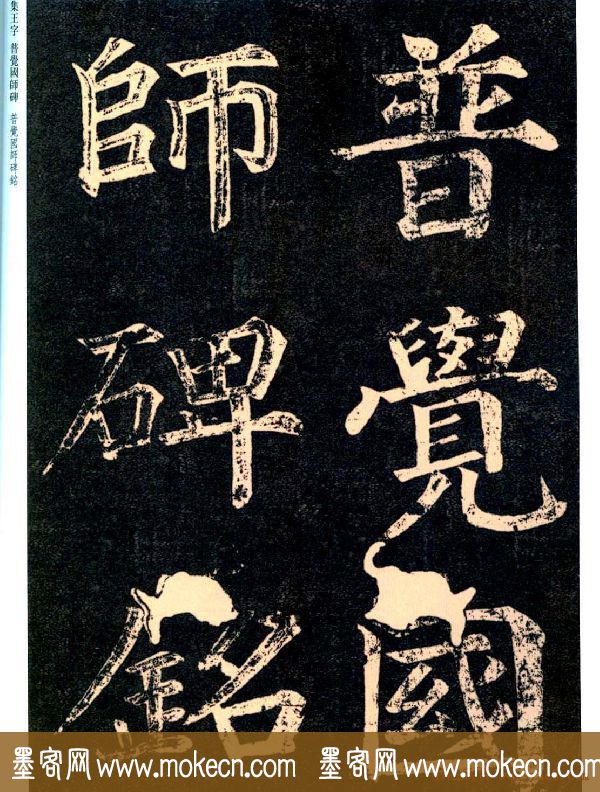 集王字 普覺國師碑 普覺國師碑銘
普覺國
師碑銘
墨客网 www.mokecn.com 墨客网 www.mokecn.com